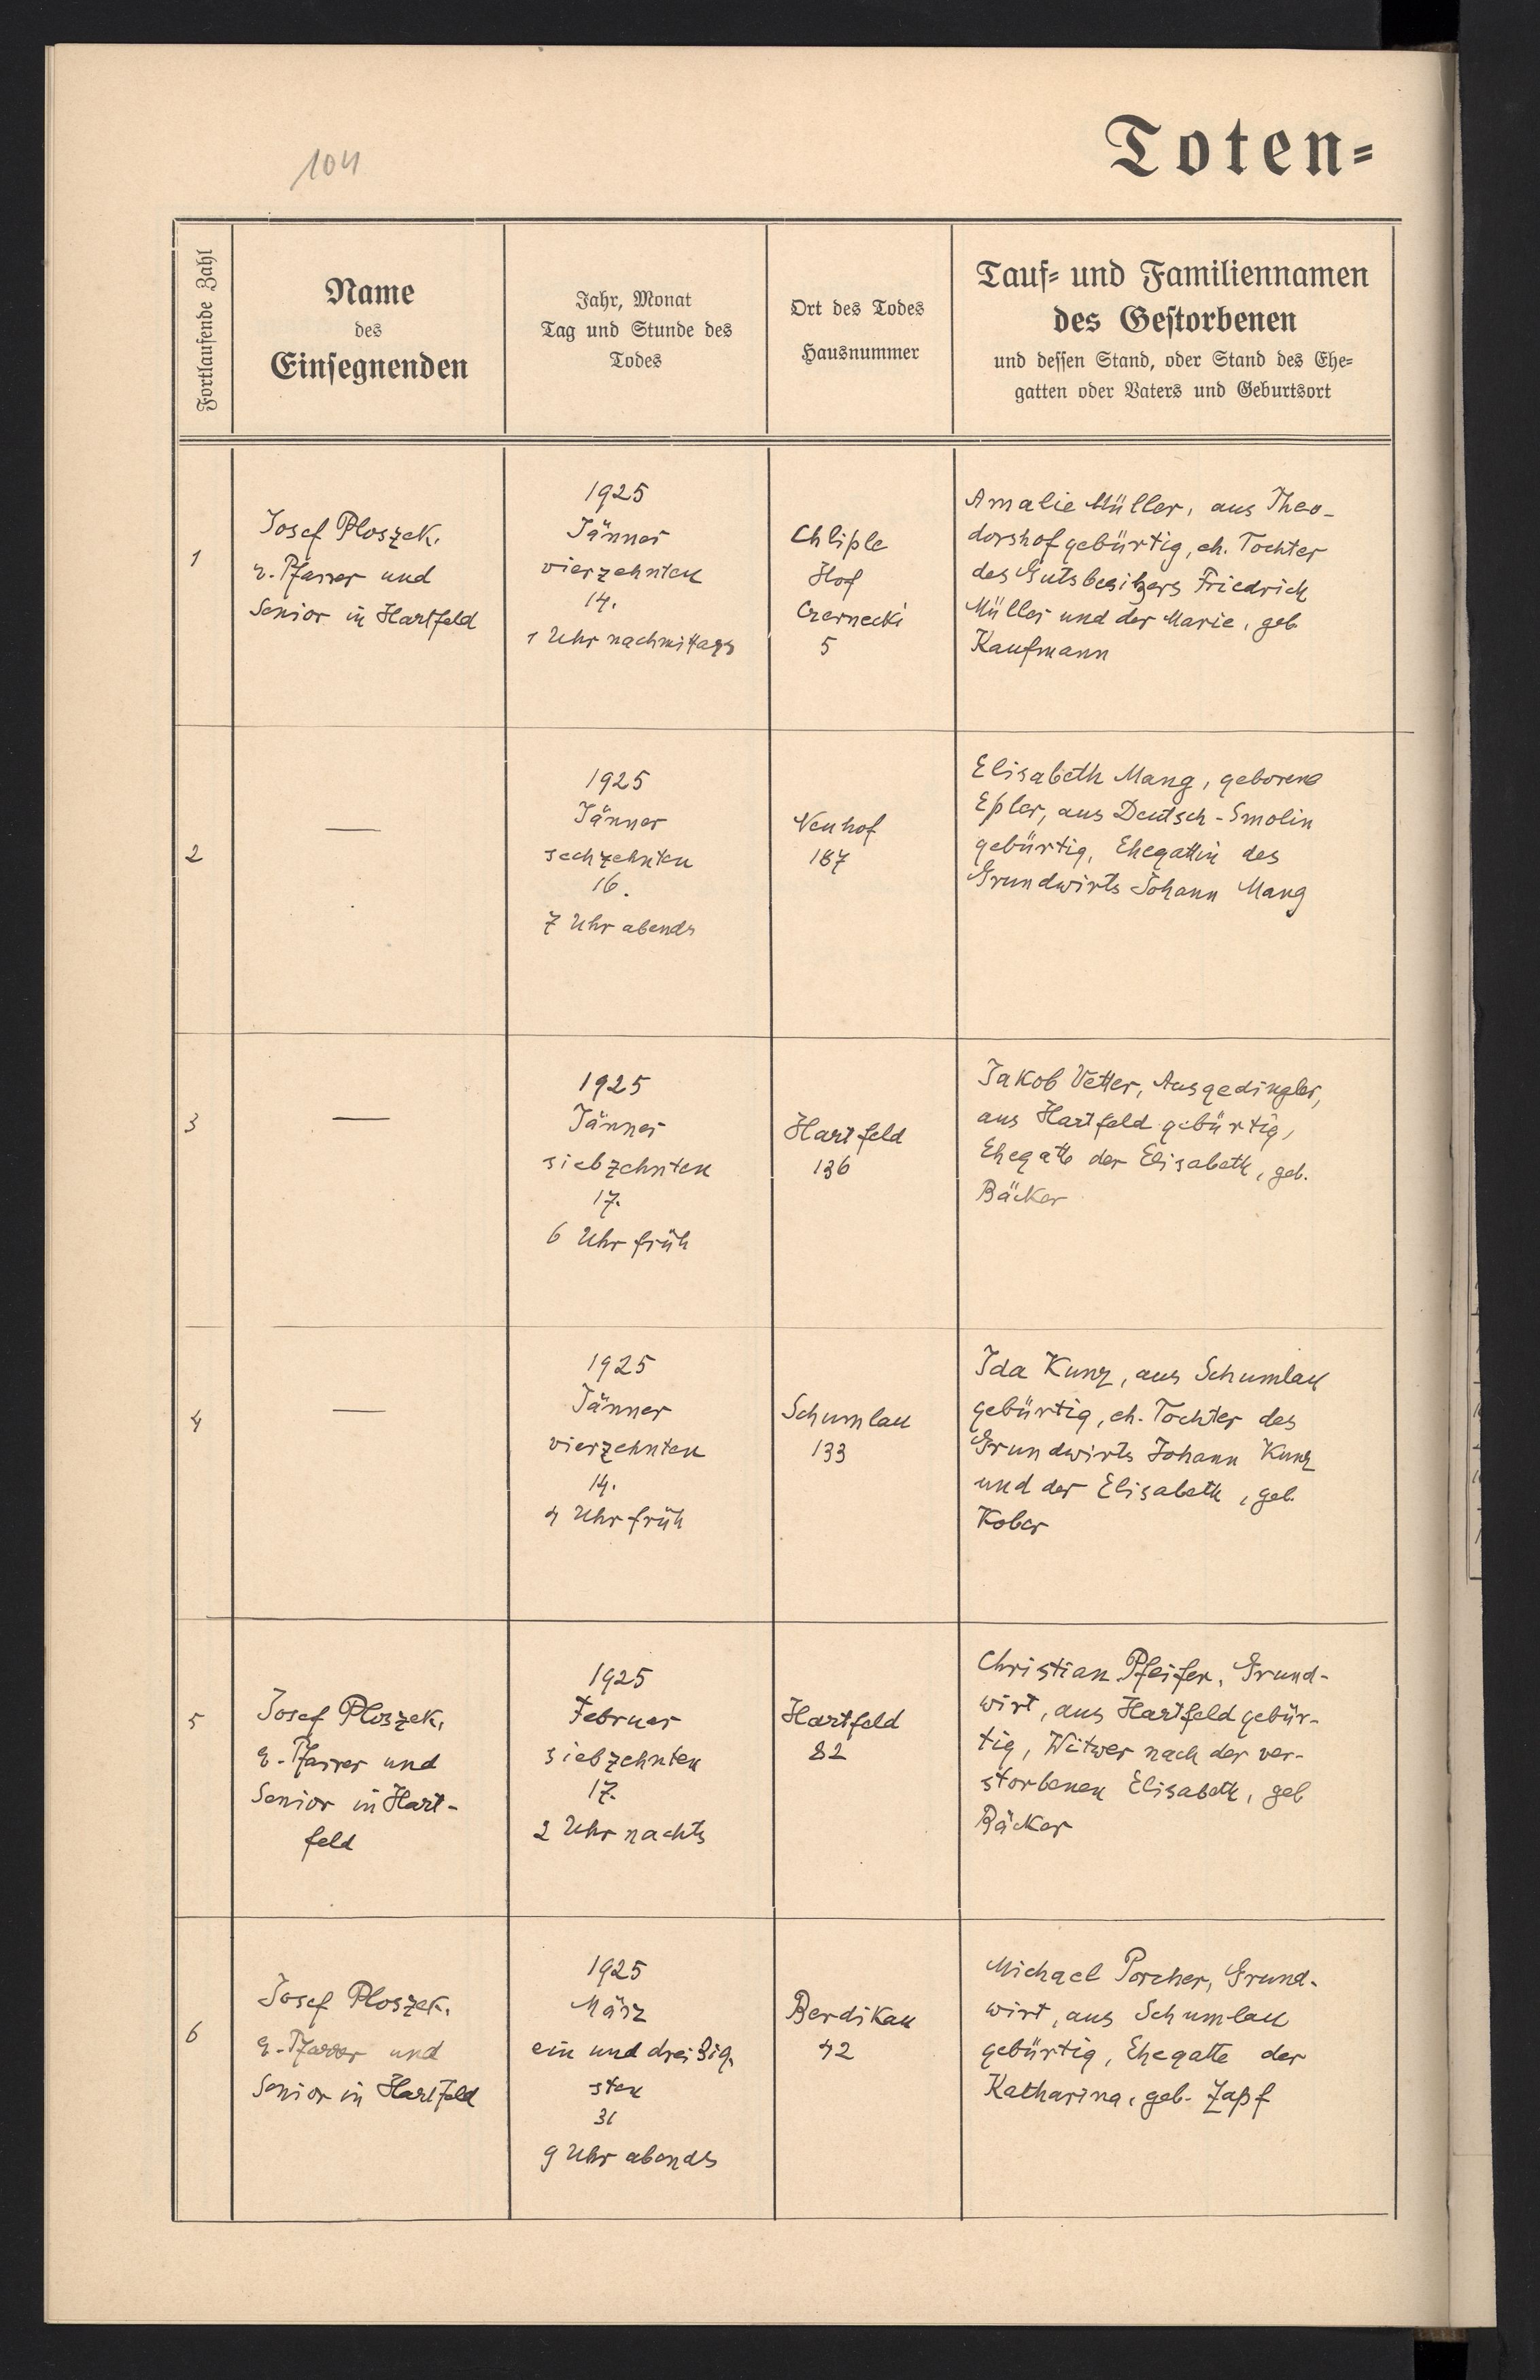 104
Toten=
Fortlaufende Zahl
Name
des
Einsegnenden
Jahr, Monat
Tag und Stunde des
Todes
Ort des Todes
Hausnummer
Tauf= und Familiennamen
des Gestorbenen
und dessen Stand, oder Stand des Ehe=
gatten oder Vaters und Geburtsort
1
Josef Ploszek,
e. Pfarrer und
Senior in Hartfeld
1925
Jänner
vierzehnten
14.
1 Uhr nachmittags
Chliple
Hof
Czernecki
5
Amalie Müller, aus Theo-
dorshof gebürtig, eh. Tochter
des Gutsbesitzers Friedrich
Müller und der Marie, geb.
Kaufmann
2
—
1925
Jänner
sechzehnten
16.
7 Uhr abends
Neuhof
167
Elisabeth Mang, geborene
Epler, aus Deutsch-Smolin
gebürtig, Ehegattin des
Grundwirts Johann Mang
3
—
1925
Jänner
siebzehnten
17.
6 Uhr früh
Hartfeld
136
Jakob Vetter, Ausgedingler,
aus Hartfeld gebürtig,
Ehegatte der Elisabeth, geb.
Bäcker
4
—
1925
Jänner
vierzehnten
14.
4 Uhr früh
Schumlau
133
Ida Kunz, aus Schumlau
gebürtig, eh. Tochter des
Grundwirts Johann Kunz
und der Elisabeth, geb.
Kober
5
Josef Ploszek,
e. Pfarrer und
Senior in Hart-
feld
1925
Februar
siebzehnten
17.
2 Uhr nachts
Hartfeld
82
Christian Pfeifer, Grund-
wirt, aus Hartfeld gebür-
tig, Witwer nach der ver-
storbenen Elisabeth, geb
Bäcker
6
Josef Ploszek,
e. Pfarrer und
Senior in Hartfeld
1925
März
ein und dreißig-
sten
31
9 Uhr abends
Berdikau
42
Michael Porcher, Grund-
wirt, aus Schumlau
gebürtig, Ehegatte der
Katharina, geb. Zapf